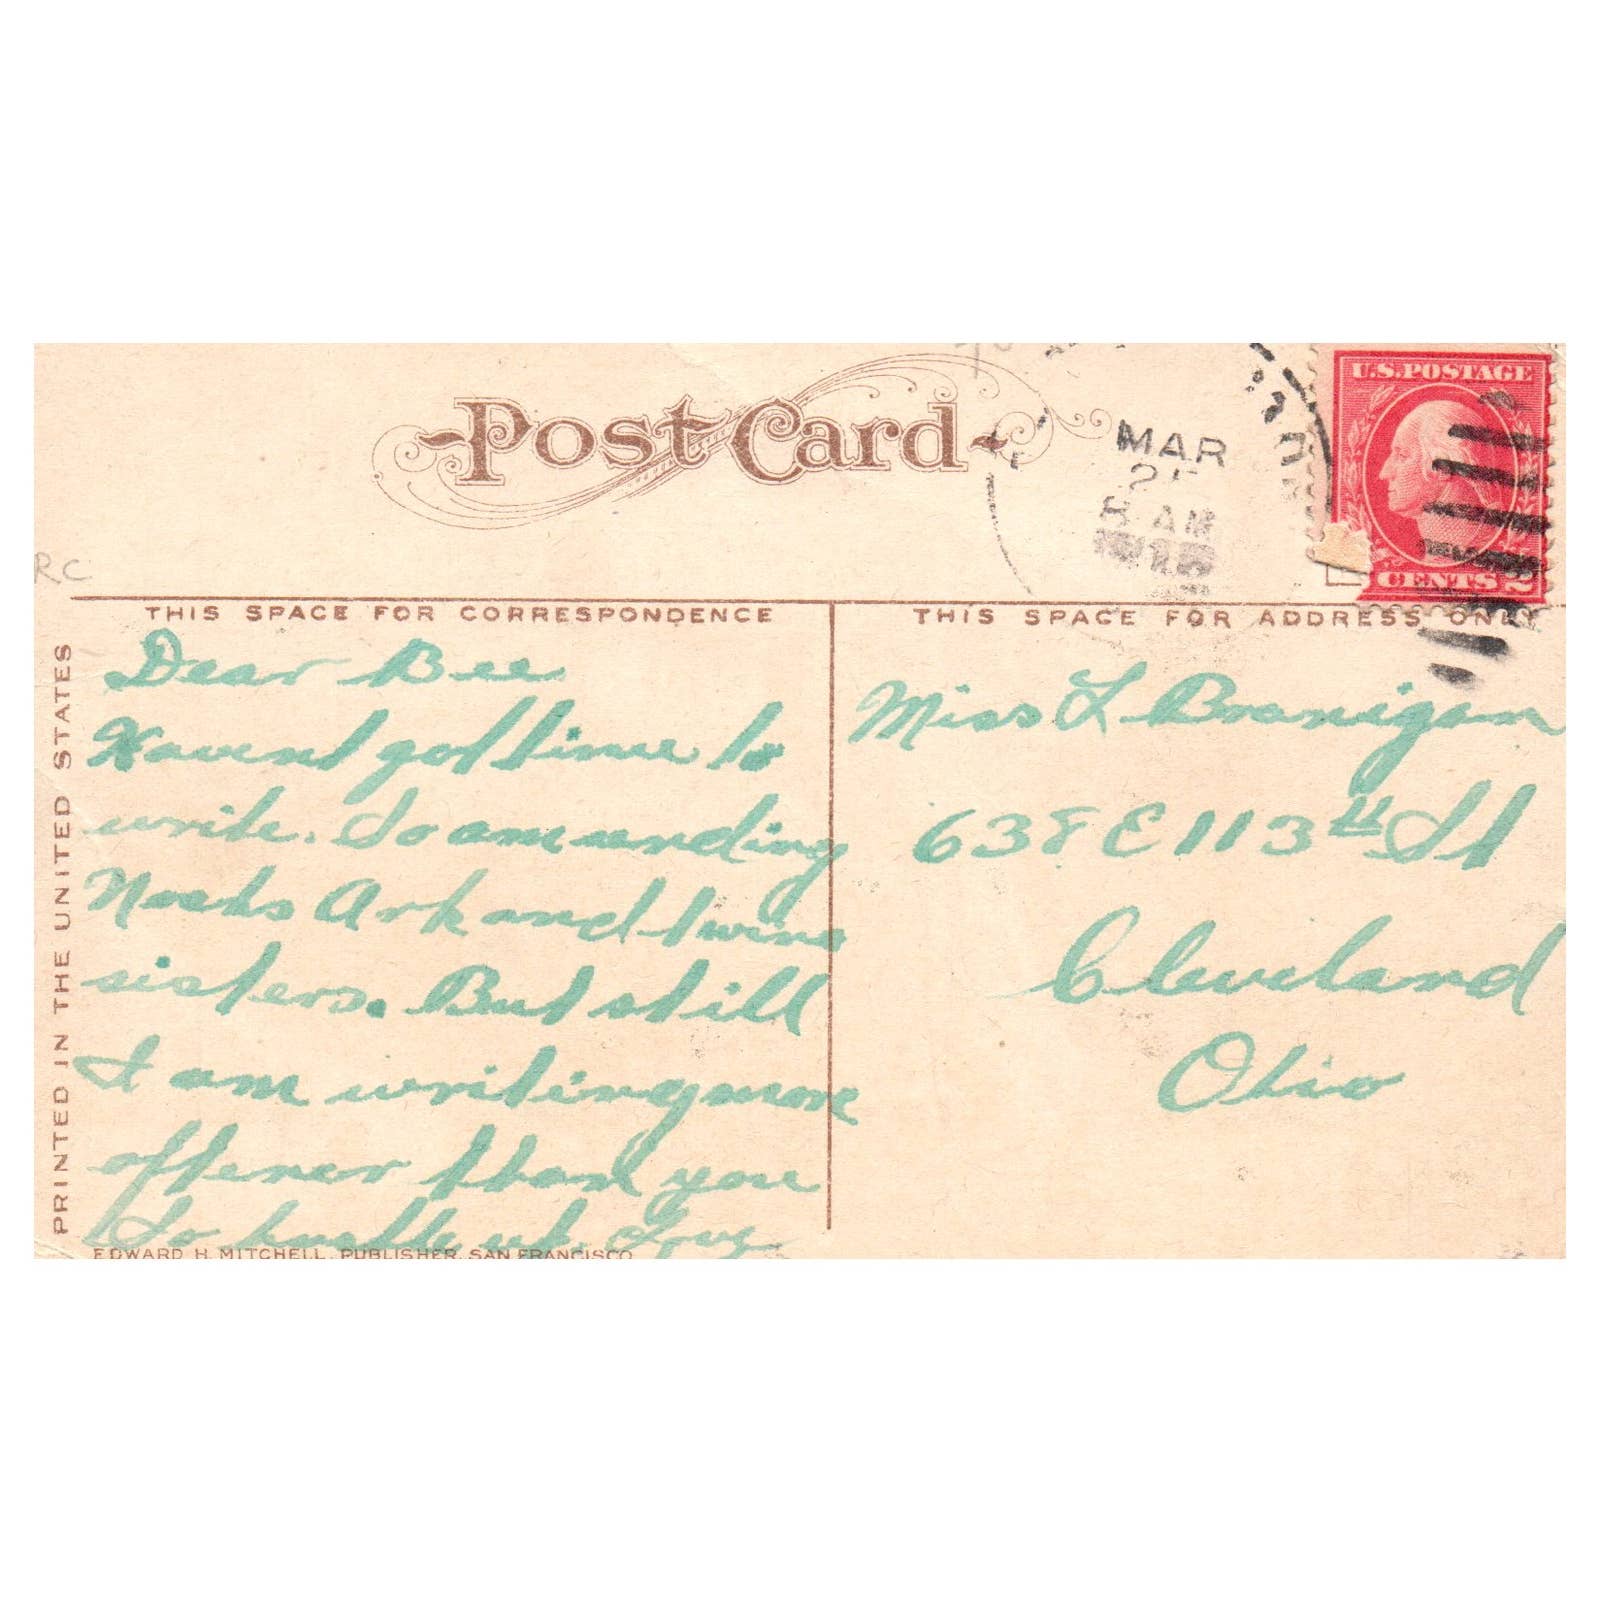 Post Card
U.S. POSTAGE
CENTS 2
MAR
8 AM
RC
THIS SPACE FOR CORRESPONDENCE
THIS SPACE FOR ADDRESS ONLY
PRINTED IN THE UNITED STATES
Dear Bee
Havent got time to
write. So am sending
Noahs Ark and twins
sisters. But still
I am writing more
oftener than you
So hustle up. Guy
Miss L Branigan
638 E 113th St
Cleveland
Ohio
EDWARD H. MITCHELL, PUBLISHER, SAN FRANCISCO